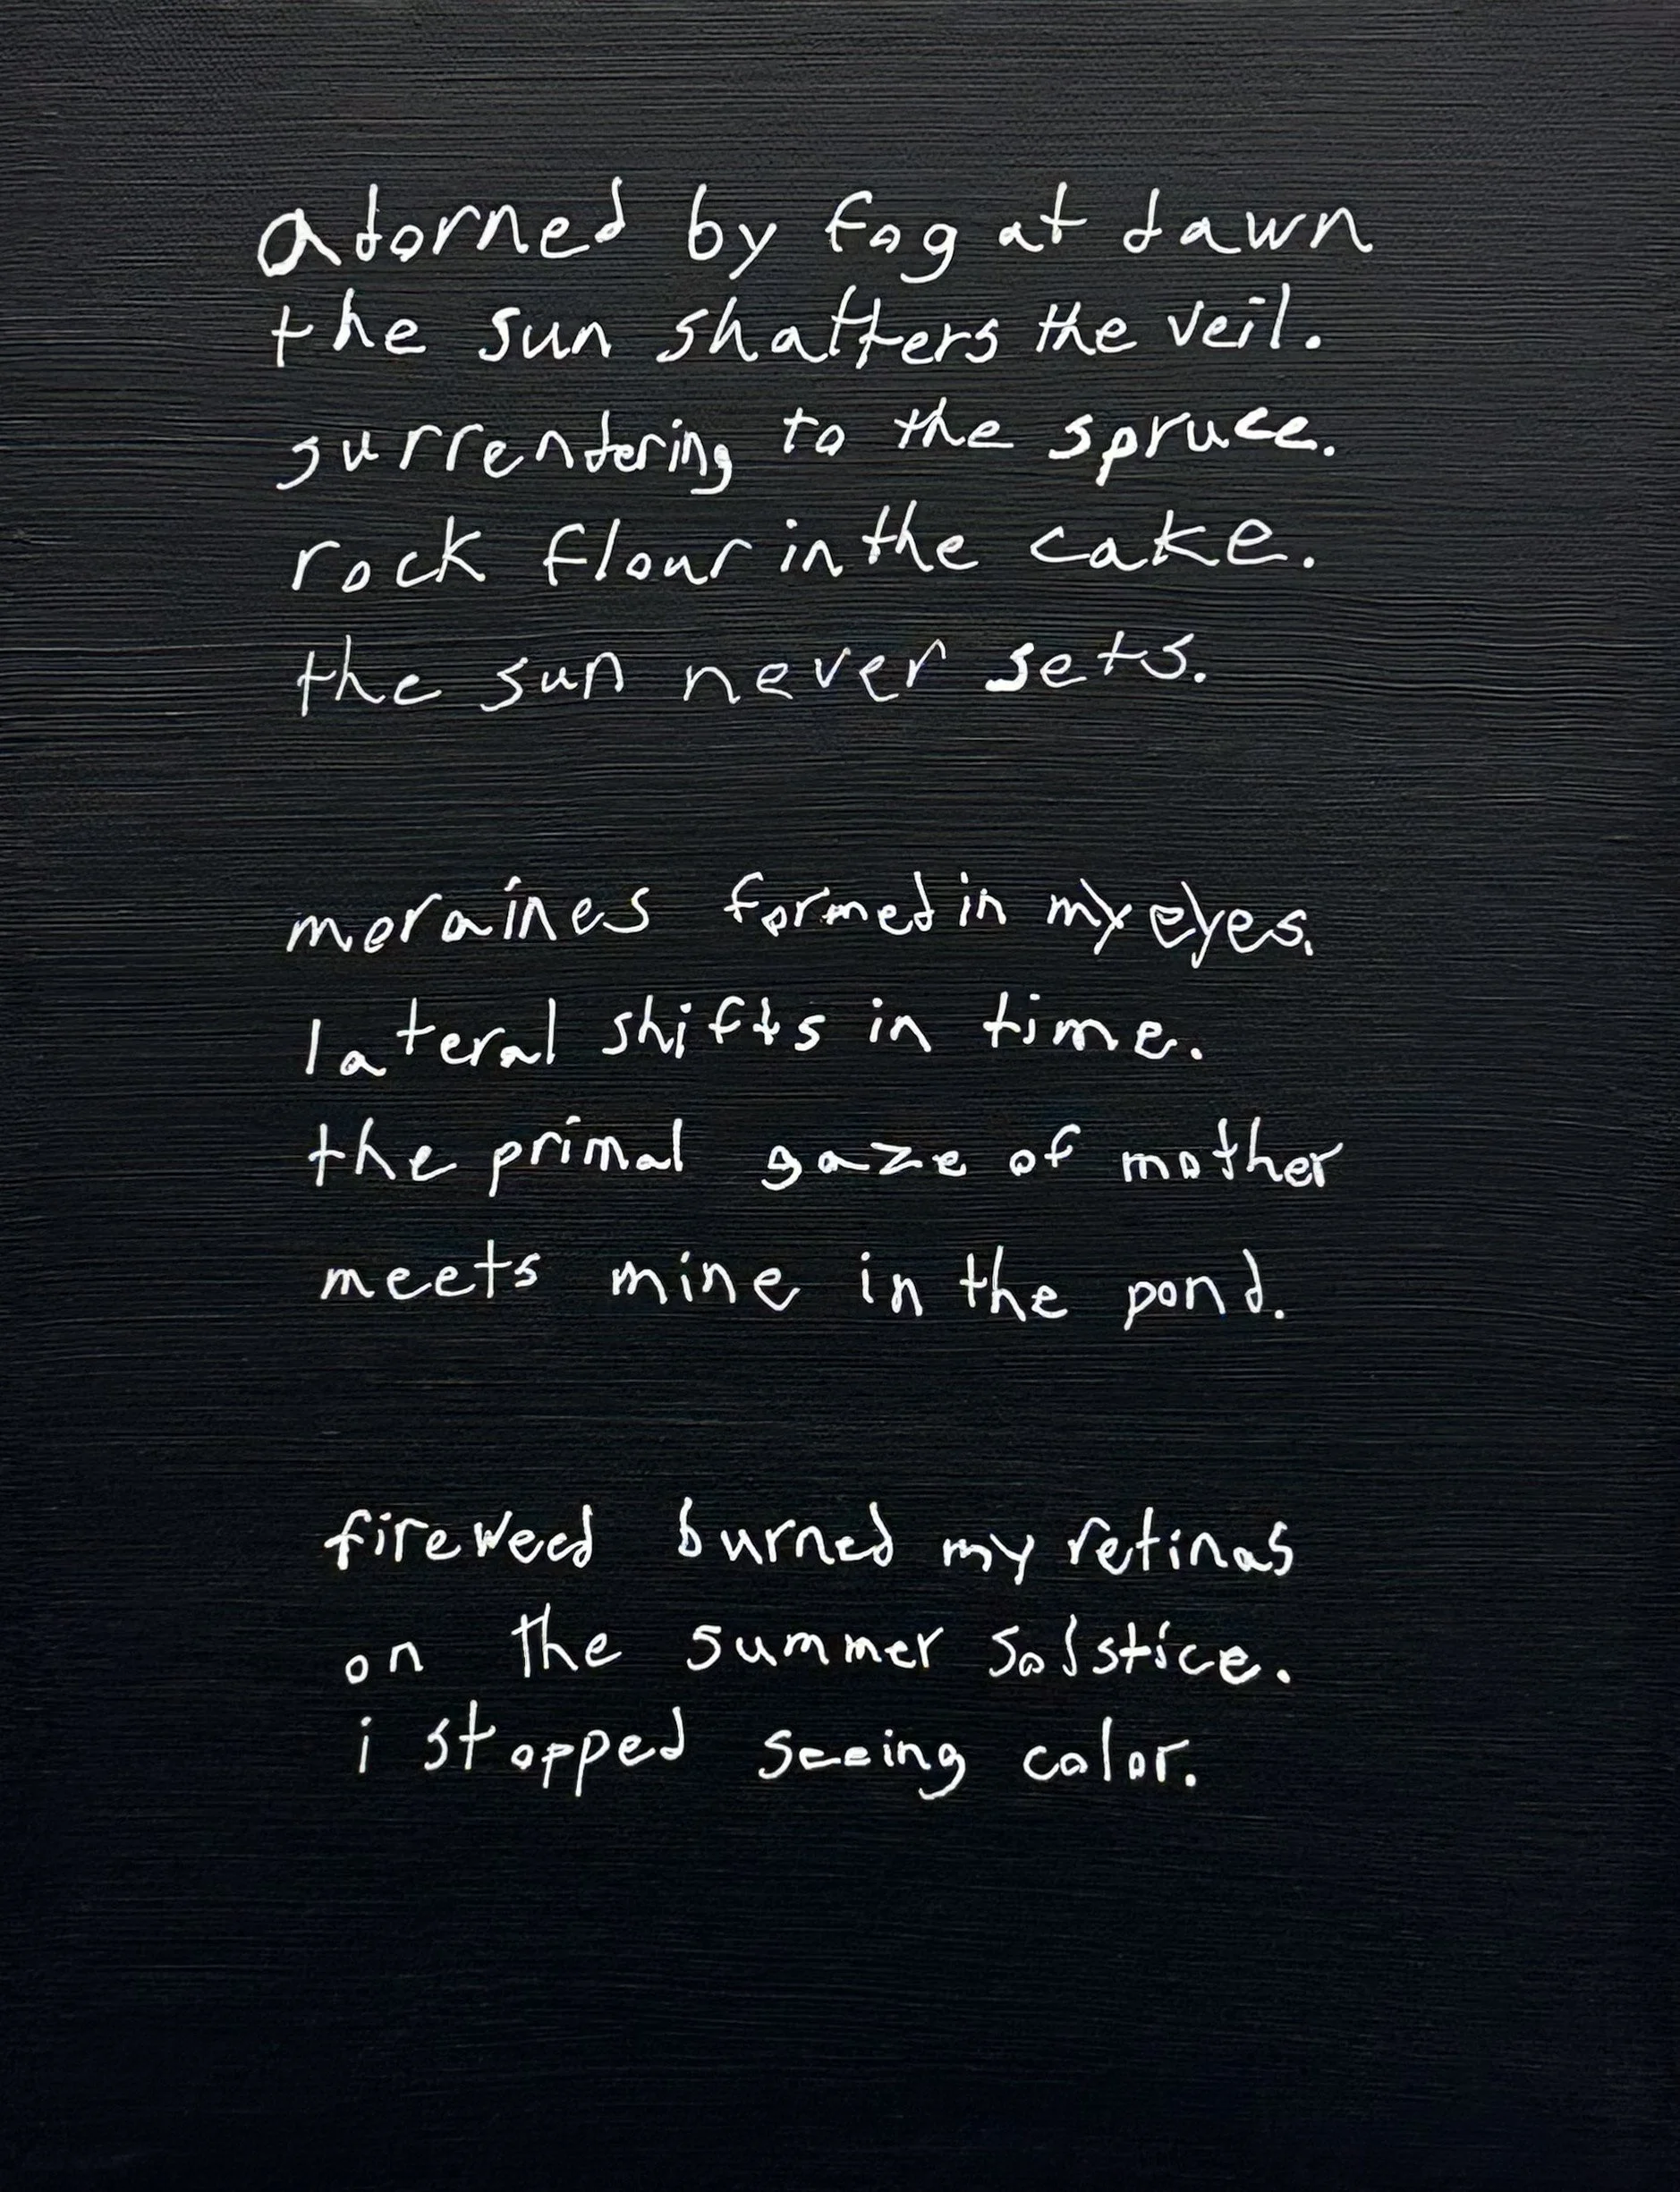 adorned by fog at dawn
the sun shatters the veil.
surrendering to the spruce.
rock flour in the cake.
the sun never sets.
moraines formed in my eyes.
lateral shifts in time.
the primal gaze of mother
meets mine in the pond.
fireweed burned my retinas
on the summer solstice.
i stopped seeing color.